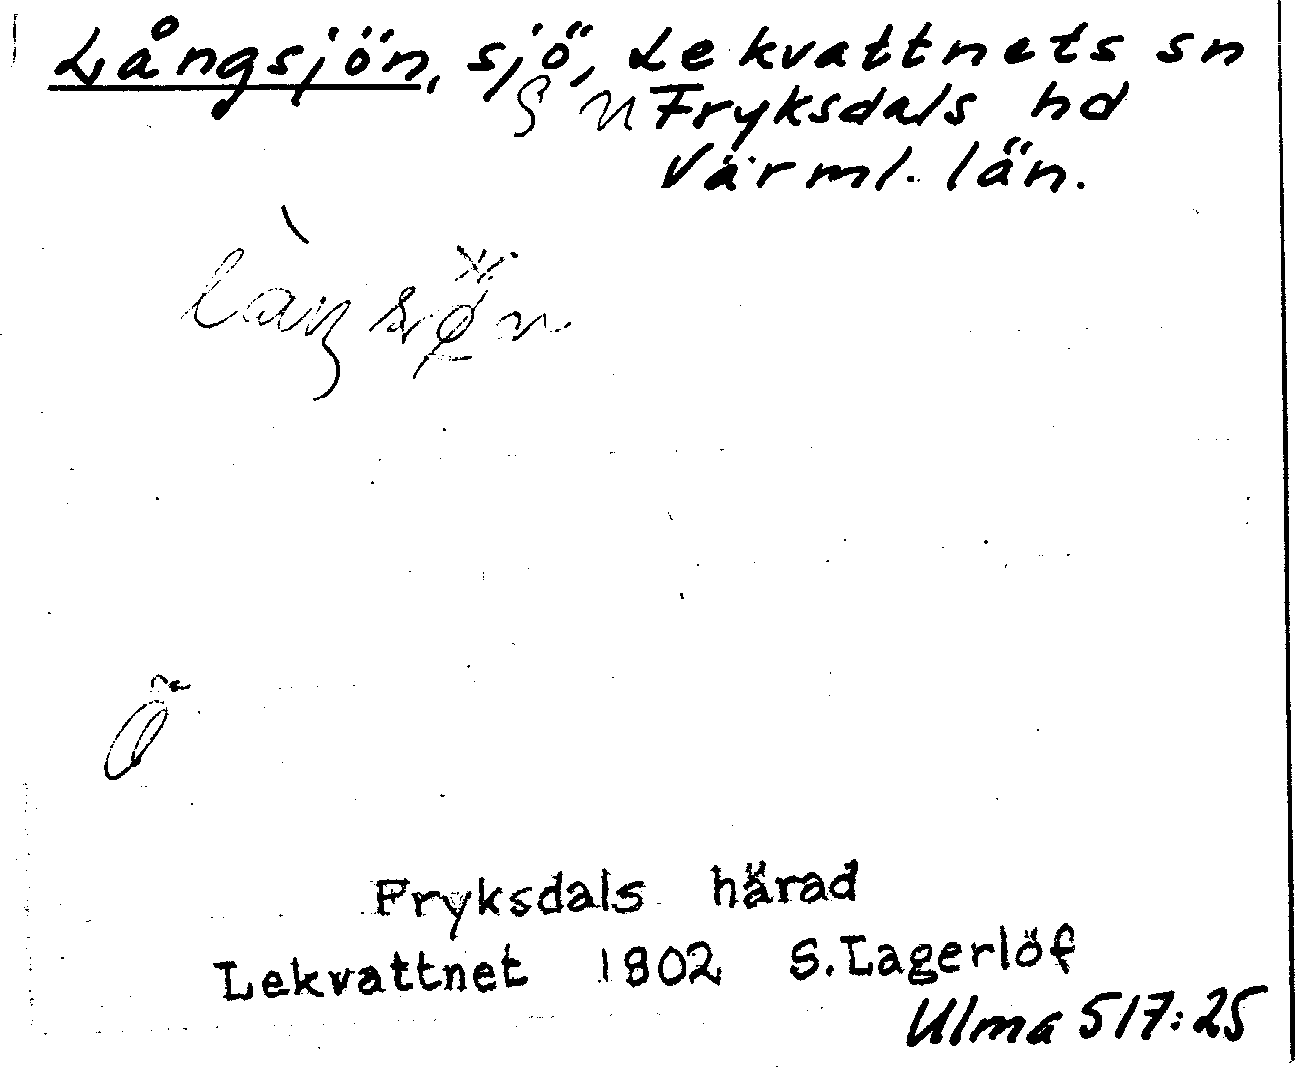 Långsjön, sjö, Lekvattnets sn
S N Fryksdals hd
Värml. län.
Fryksdals härad
Lekvattnet 1802 S. Lagerlöf
Ulma 517:25